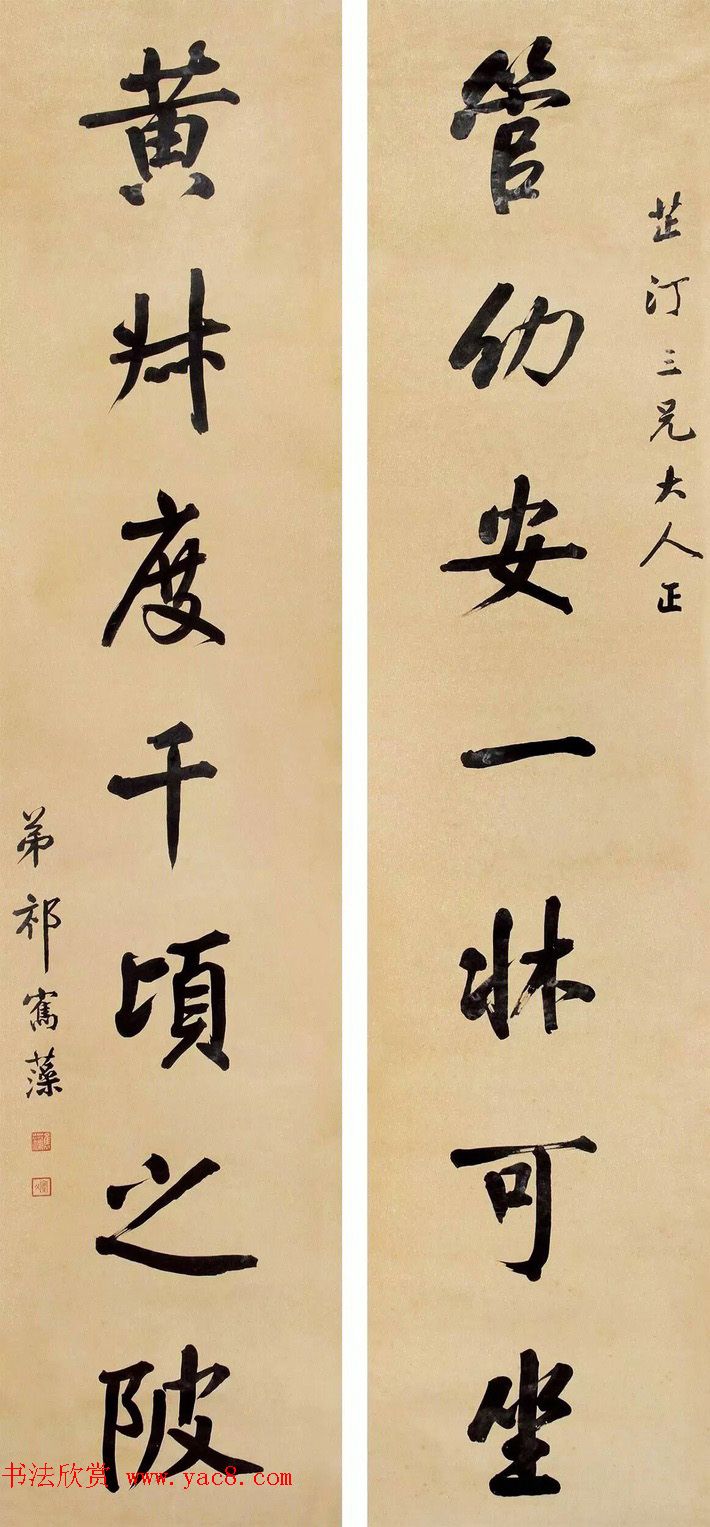 芷汀三兄大人正
管幼安一牀可坐
黄叔度千頃之陂
弟祁寯藻
书法欣赏 www.yac8.com